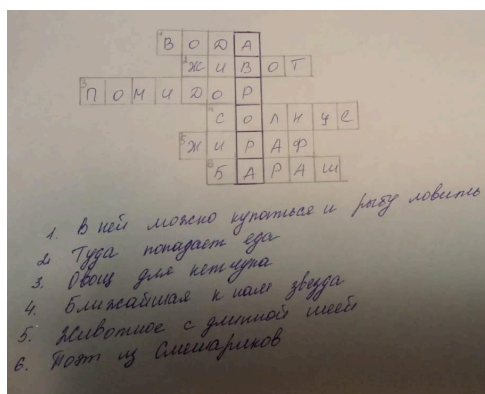 1 ВОДА
2 ЖИВОТ
3 ПОМИДОР
4 СОЛНЦЕ
5 ЖИРАФ
6 БАРАШ
1. В ней можно купаться и рыбу ловить
2. Туда попадает еда
3. Овощ для кетчупа
4. Ближайшая к нам звезда
5. Животное с длинной шеей
6. Поэт из Смешариков